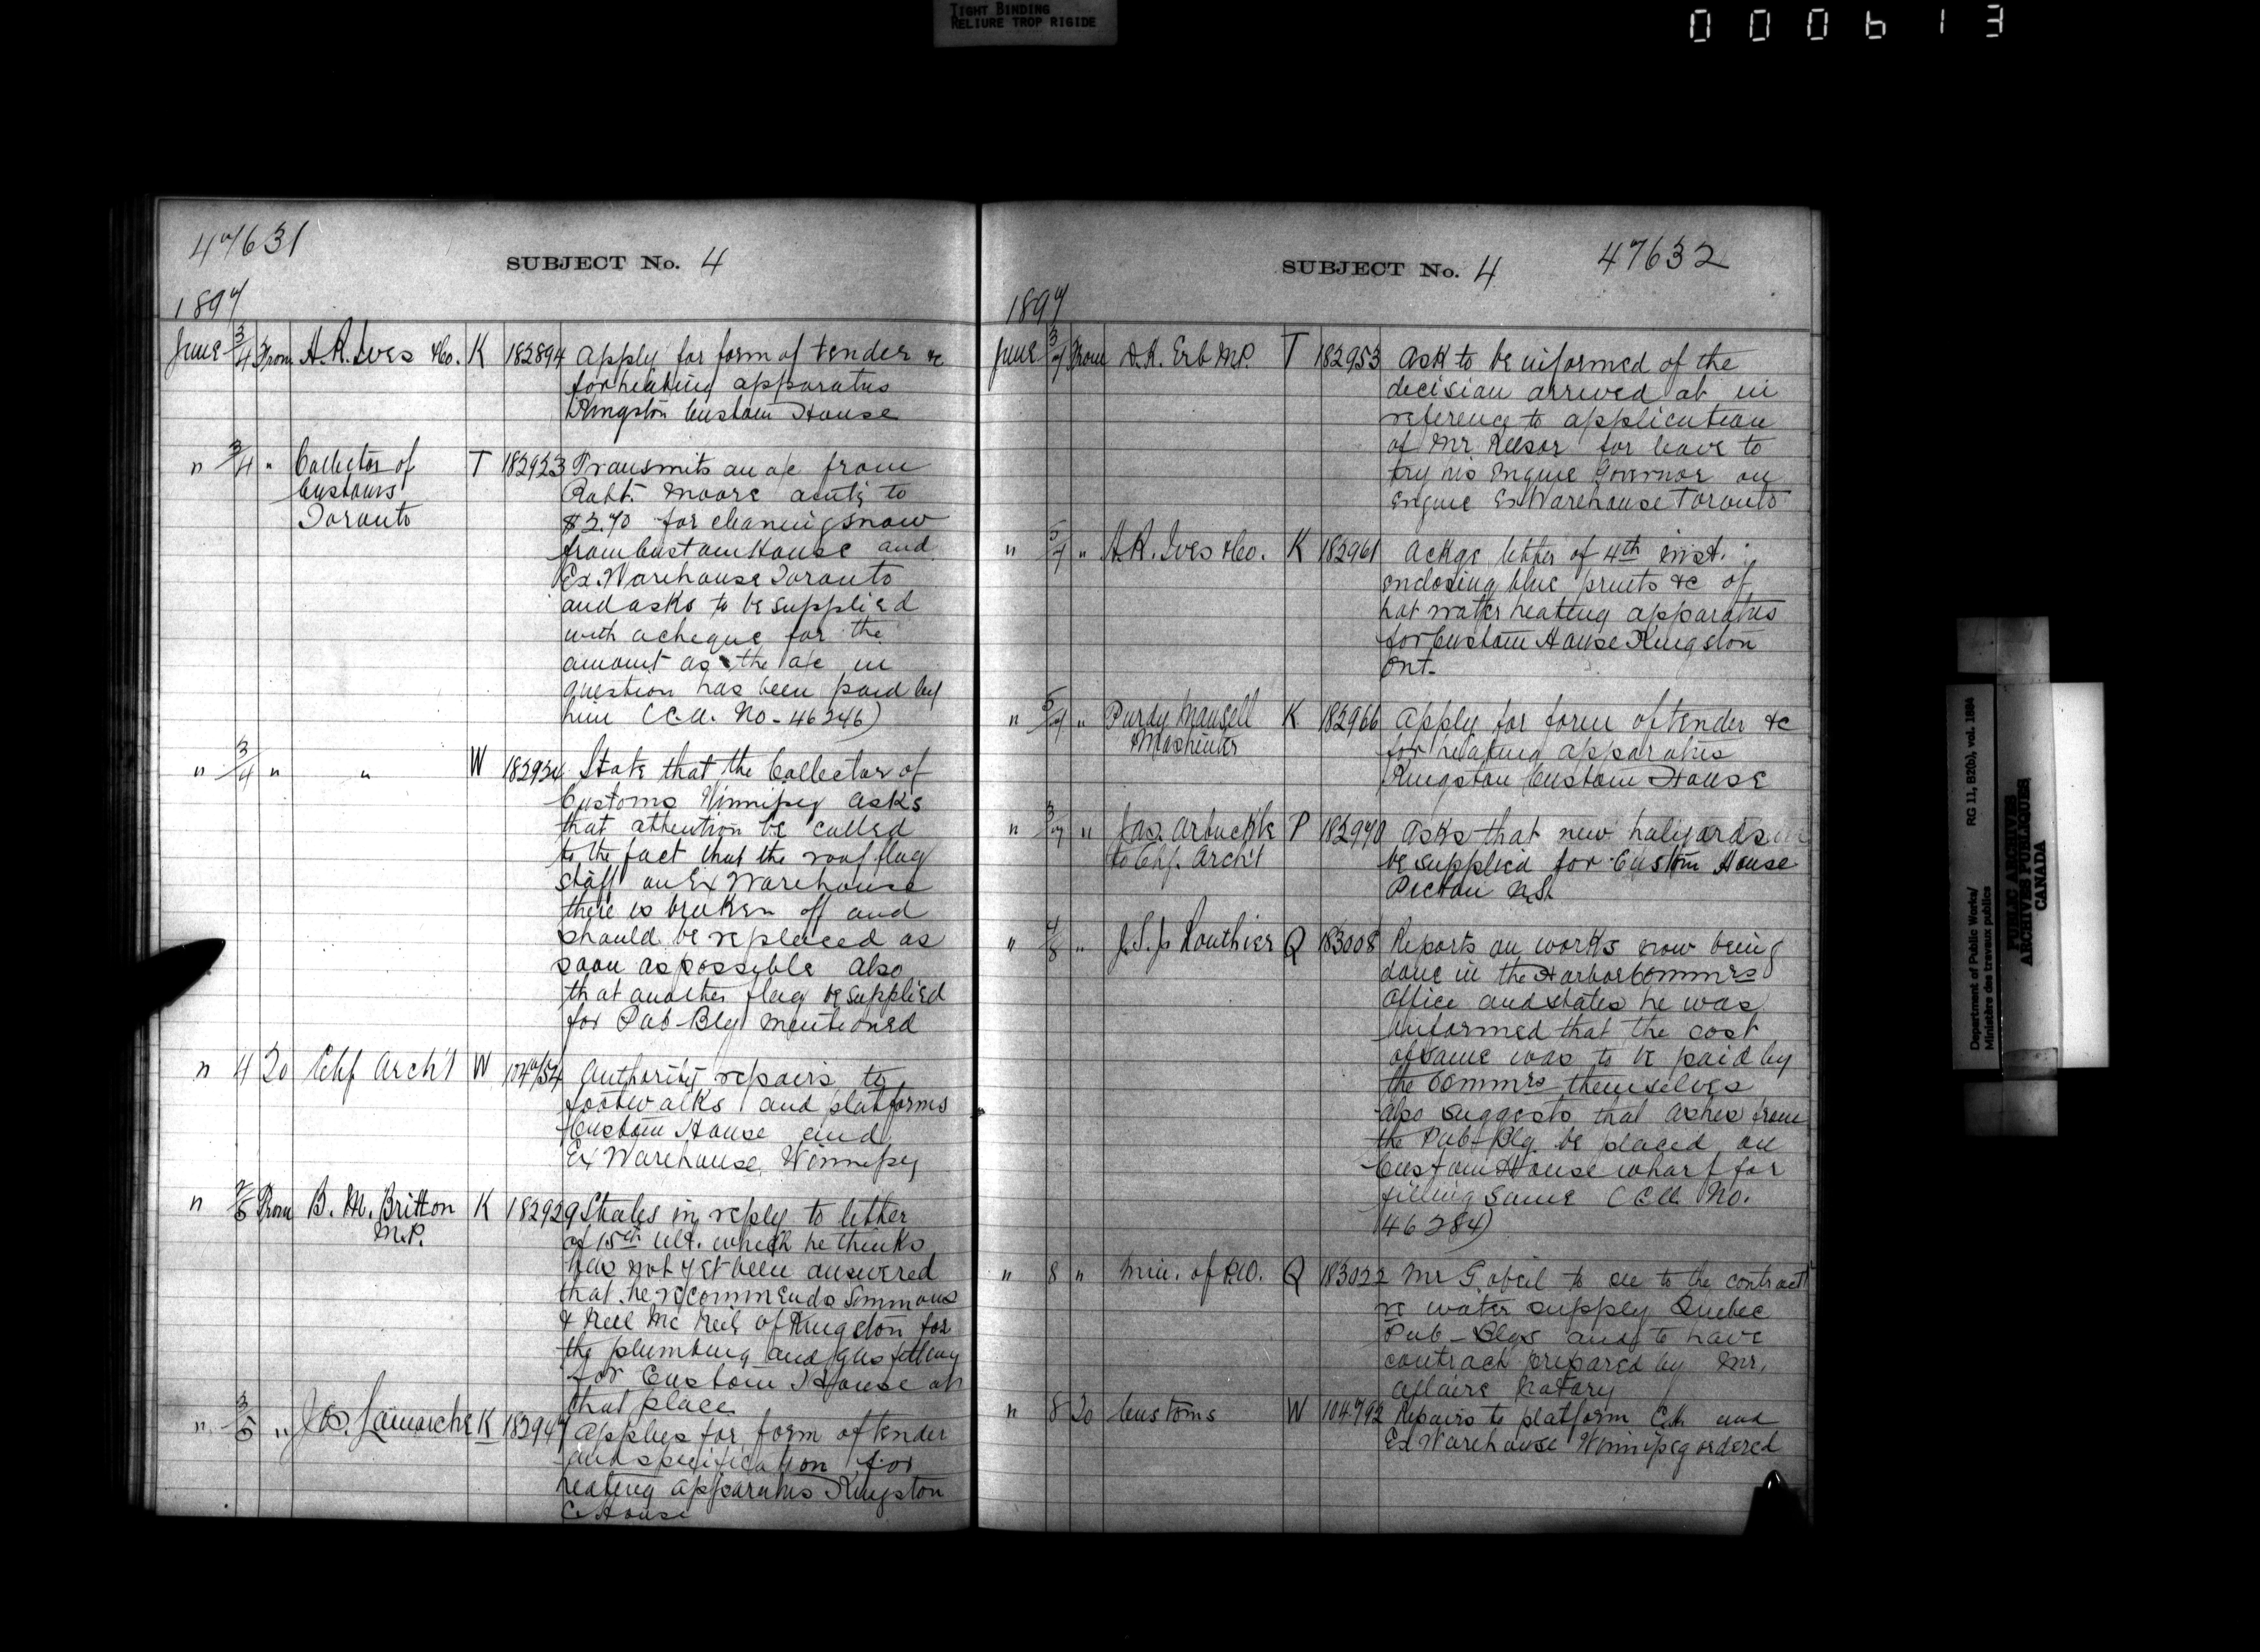 TIGHT BINDING
RELIURE TROP RIGIDE
000613
47631
SUBJECT No. 4
1897
June 3/4 From A.R. Ives & Co. K 182894 Apply for form of tender &c
for heating apparatus
Kingston Custom House
" 3/4 " Collector of T 182923 Transmits an a/c from
Customs Robt. Moore amtg to
Toronto $2.70 for cleaning snow
from Custom House and
Ex. Warehouse Toronto
and asks to be supplied
with a cheque for the
amount as the a/c in
question has been paid by
him (C.U. No - 46246)
" 3/4 " " W 182924 State that the Collector of
Customs Winnipeg asks
that attention be called
to the fact that the roof flag
staff on Ex Warehouse
there is broken off and
should be replaced as
soon as possible also
that another flag be supplied
for Pub-Blg mentioned
" 4 To Chf Arch't W 104754 Authority repairs to
footwalks and platforms
Custom House and
Ex Warehouse, Winnipeg
" From B. M. Britton K 182929 States in reply to letter
M.P. of 15th ult. which he thinks
has not yet been answered
that he recommends Simmons
& of Kingston for
the plumbing and gas fitting
for Custom House at
that place
" 3/5 " Jos. Lamarche K 182947 Applies for form of tender
and specification for
heating apparatus Kingston
C. House
SUBJECT No. 4 47632
1897
June 3/7 From D.K. Erb M.P. T 182953 Ask to be informed of the
decision arrived at in
reference to application
of Mr for leave to
try his Engine Governor on
engine Ex Warehouse Toronto
" 5/7 " A.R. Ives & Co. K 182961 Ackge letter of 4th inst.
enclosing blue prints &c of
hot water heating apparatus
for Custom House Kingston
Ont-
" 5/7 " Purdy Mansell K 182966 Apply for form of tender &c
& Mashinter for heating apparatus
Kingston Custom House
" 3/7 " Jas. Arbuckle P 182970 Asks that new halyards
to Chf. Arch't be supplied for Custom House
Pictou N.S.
" 4/8 " J.S.J. Routhier Q 183008 Reports on works now being
done in the Harbor Commrs
Office and states he was
informed that the cost
of same was to be paid by
the Commrs themselves
also suggests that ashes from
the Pub-Blg. be placed on
Custom House wharf for
filling same (C.U. No.
46284)
" 8 " Min. of P.W. Q 183022 Mr Gobeil to see to the contract
re water supply Quebec
Pub-Blgs and to have
contract prepared by Mr.
Allaire Notary
" 8 To Customs W 104792 Repairs to platform C.H. and
Ex Warehouse Winnipeg ordered
Department of Public Works/
Ministère des travaux publics
RG 11, B2(b), vol. 1884
PUBLIC ARCHIVES
ARCHIVES PUBLIQUES
CANADA